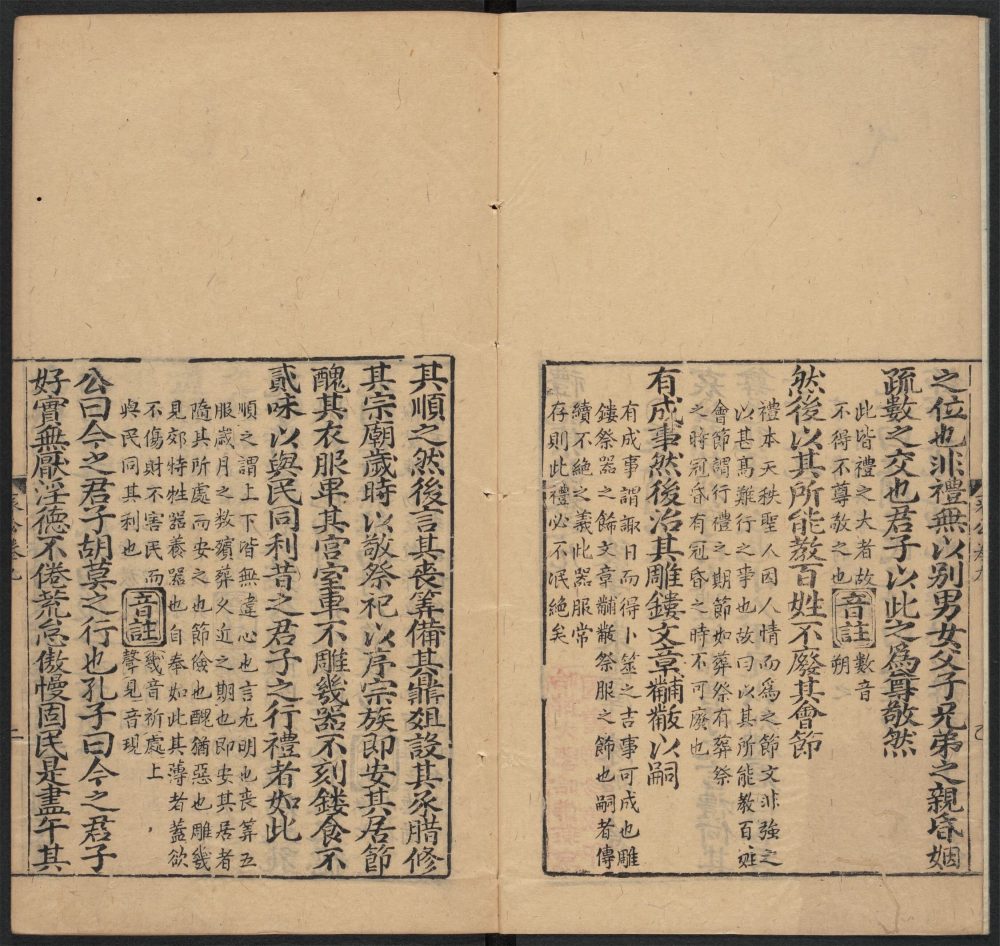 之位也非禮無以別男女父子兄弟之親昏姻
疏數之交也君子以此之爲尊敬然
此皆禮之大者故
不得不尊敬之也
音註
數音
朔
然後以其所能教百姓不廢其會節
禮本天秩聖人因人情而爲之節文非強之
以甚高難行之事也故曰以其所能教百姓
會節謂行禮之期節如葬祭有葬祭
之時冠昏有冠昏之時不可廢也
有成事然後治其雕鏤文章黼黻以嗣
有成事謂諏日而得卜筮之吉事可成也雕
鏤祭器之飾文章黼黻祭服之飾也嗣者傳
續不絕之義此器服常
存則此禮必不泯絕矣
其順之然後言其喪筭備其鼎俎設其豕腊修
其宗廟歲時以敬祭祀以序宗族即安其居節
醜其衣服卑其宮室車不雕幾器不刻鏤食不
貳味以與民同利昔之君子之行禮者如此
順之謂上下皆無違心也言尤明也喪筭五
服歲月之數殯葬久近之期也即安其居者
隨其所處而安之也節儉也醜猶惡也雕幾
見郊特牲器養器也自奉如此其薄者蓋欲
不傷財不害民而
與民同其利也
音註
幾音祈處上
聲見音現
公曰今之君子胡莫之行也孔子曰今之君子
好實無厭淫德不倦荒怠傲慢固民是盡午其